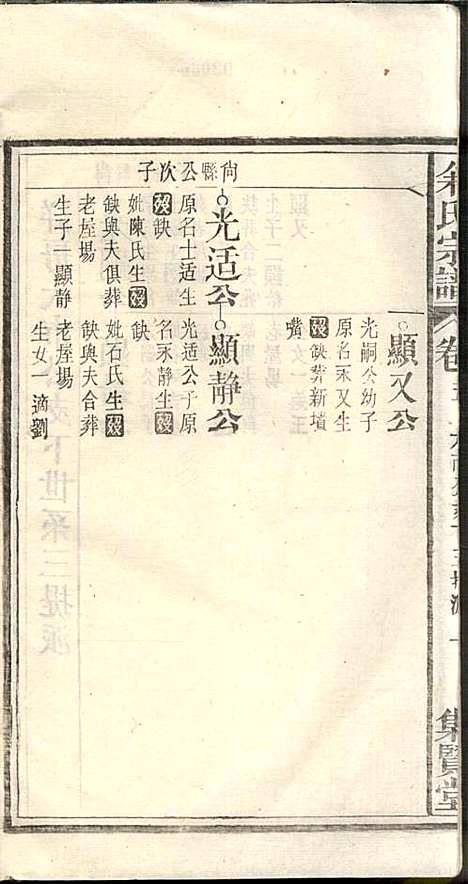 顯又公
光嗣公幼子
原名永又生
歿缺葬新墳
嘴
尙縣公次子
光适公
原名士适生
歿缺
妣陳氏生歿
缺與夫俱葬
老屋場
生子 顯靜
顯靜公
光适公子原
名永靜生歿
缺
妣石氏生歿
缺與夫合葬
老屋場
生女一適劉
氏宗譜
卷
集賢堂